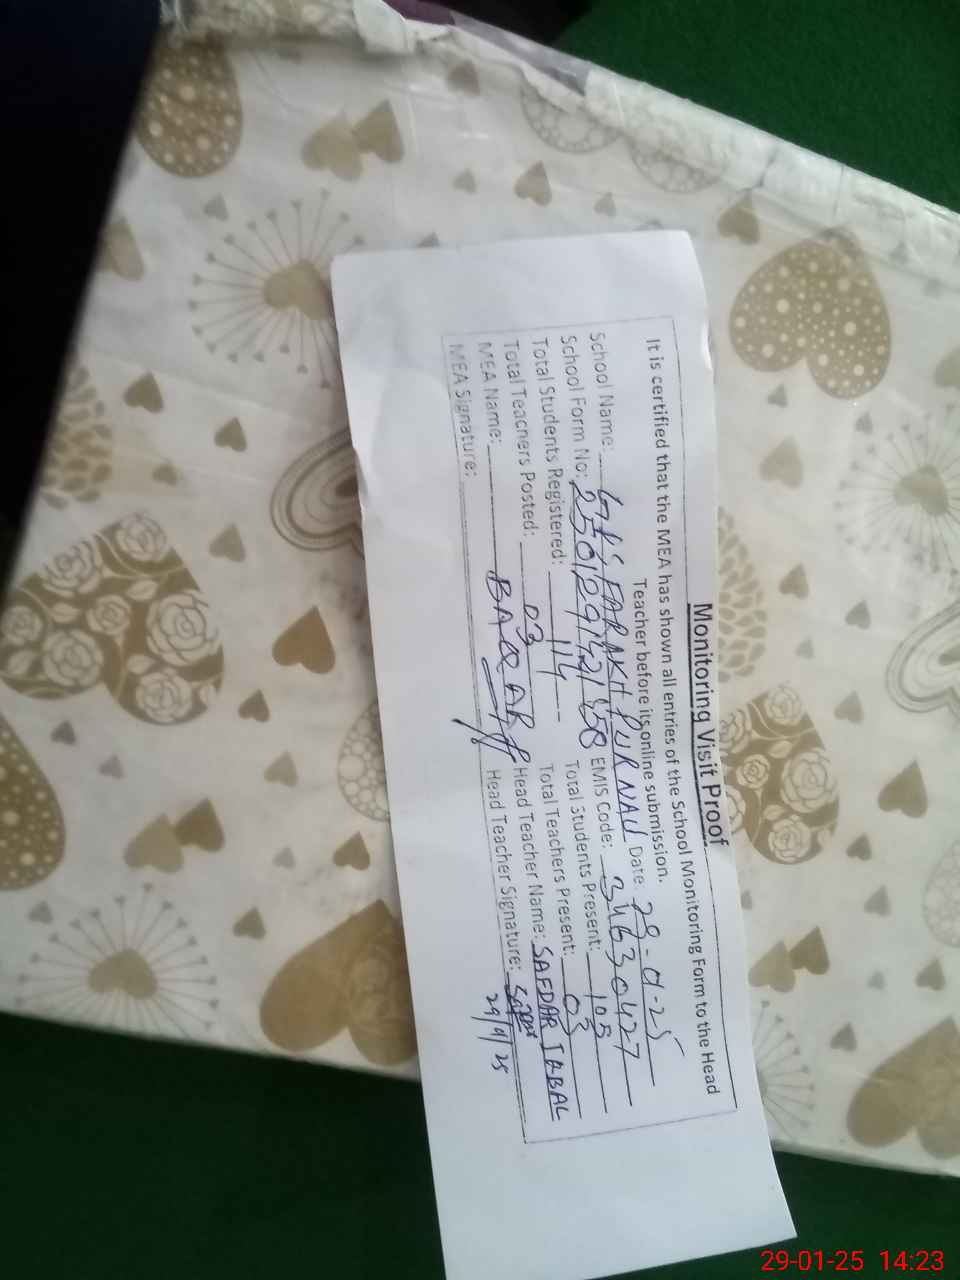 Monitoring Visit Proof
It is certified that the MEA has shown all entries of the School Monitoring Form to the Head
Teacher before its online submission.
School Name: GPS FARAKH PUR NAU Date: 29-01-25
School Form No: EMIS Code: 34630427
Total Students Registered: 114 Total Students Present: 105
Total Teachers Posted: 03 Total Teachers Present: 03
MEA Name: BAQAR Head Teacher Name: SAFDAR IQBAL
MEA Signature: Head Teacher Signature:
29/1/25
29-01-25 14:23